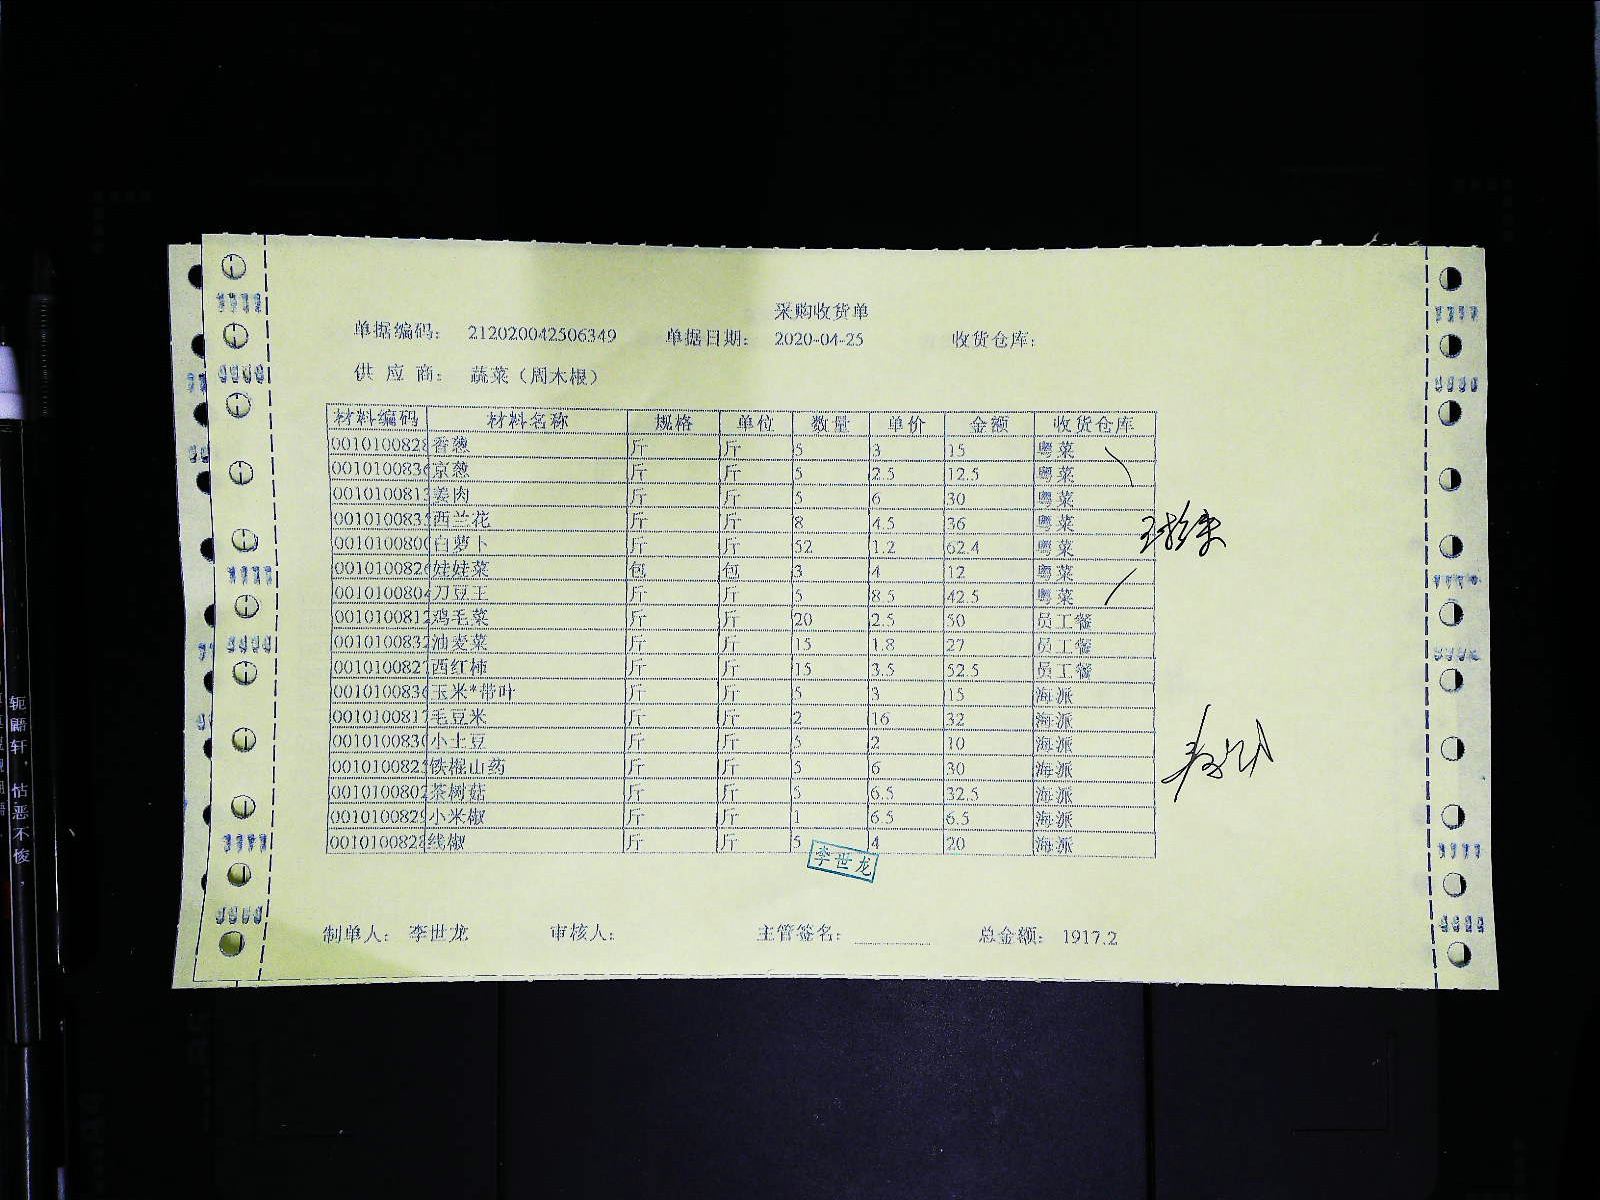 采购收货单
单据编码： 212020042506349 单据日期： 2020-04-25 收货仓库：
供 应 商： 蔬菜（周木根）
材料编码 材料名称 规格 单位 数量 单价 金额 收货仓库
0010100828 香葱 斤 斤 5 3 15 粤菜
0010100836 京葱 斤 斤 5 2.5 12.5 粤菜
0010100813 姜肉 斤 斤 5 6 30 粤菜
0010100835 西兰花 斤 斤 8 4.5 36 粤菜
0010100800 白萝卜 斤 斤 52 1.2 62.4 粤菜
0010100826 娃娃菜 包 包 3 4 12 粤菜
0010100804 刀豆王 斤 斤 5 8.5 42.5 粤菜
0010100812 鸡毛菜 斤 斤 20 2.5 50 员工餐
0010100832 油麦菜 斤 斤 15 1.8 27 员工餐
0010100827 西红柿 斤 斤 15 3.5 52.5 员工餐
0010100836 玉米*带叶 斤 斤 5 3 15 海派
0010100817 毛豆米 斤 斤 2 16 32 海派
0010100830 小土豆 斤 斤 5 2 10 海派
0010100825 铁棍山药 斤 斤 5 6 30 海派
0010100802 茶树菇 斤 斤 5 6.5 32.5 海派
0010100829 小米椒 斤 斤 1 6.5 6.5 海派
0010100828 线椒 斤 斤 5 4 20 海派
李世龙
制单人： 李世龙 审核人： 主管签名： 总金额： 1917.2